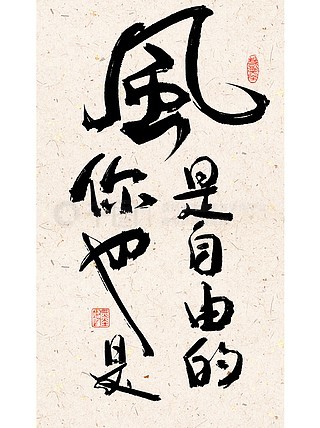 風
是自由的
你也是